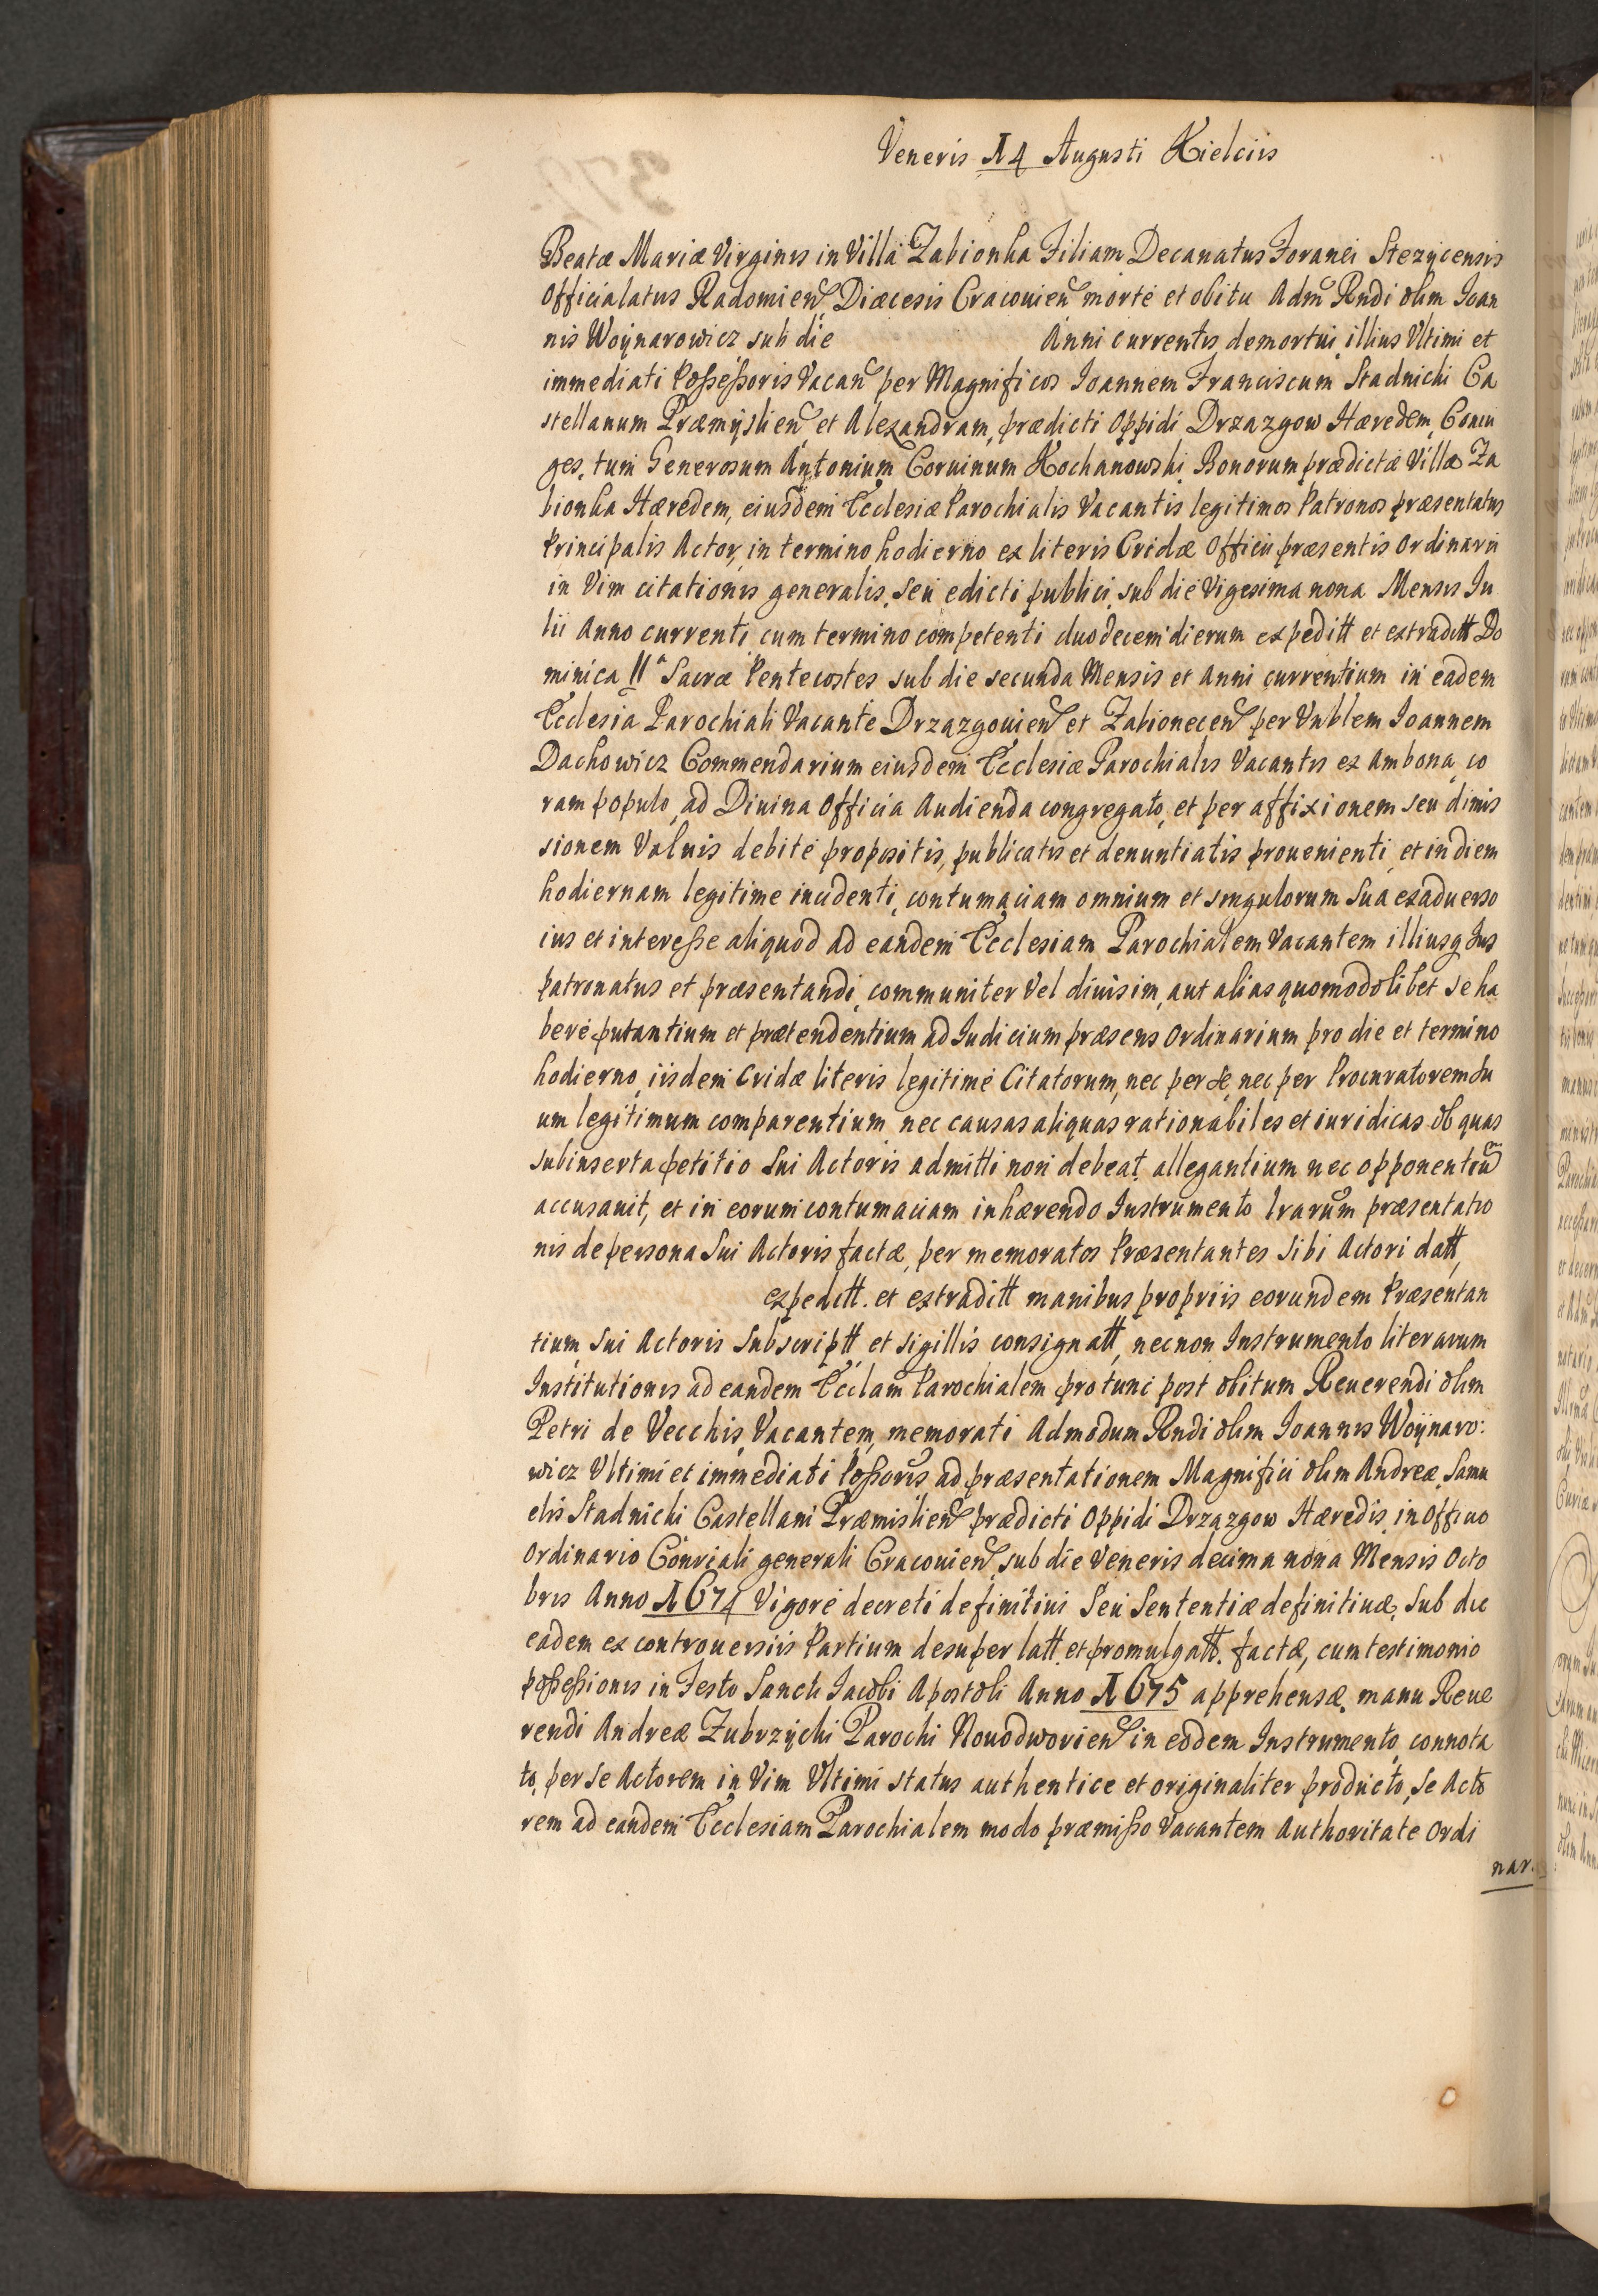 Veneris 14 Augusti Kielciis
Beatæ Mariæ Virginis in Villa Zabionka Filiam Decanatus Foranei Stezycensis
Officialatus Radomien Diæcesis Cracouien morte et obitu Adm Rndi olim Ioan
nis Woÿnarowicz sub die Anni currentis demortui illius Vltimi et
immediati Poſseſsoris Vacan per Magnificos Ioannem Franciscum Stadnicki Ca
stellanum Præmÿslien et Alexandram, prædicti Oppidi Drzazgow Hæredem, Coniu
ges, tum Generosum Antonium Coruinum Kochanowski Bonorum prædictæ Villæ Za
bionka Hæredem, eiusdem Ecclesiæ Parochialis Vacantis legitimos Patronos præsentatus
Principalis Actor, in termino hodierno ex literis Cridæ Officii præsentis Ordinarii
in Vim citationis generalis, seu edicti publici, sub die Vigesima nona Mensis Iu
lii Anno currenti cum termino competenti duodecem dierum expeditt et extraditt Do
minica 11ª Sacræ Pentecostes sub die secunda Mensis et Anni currentium in eadem
Ecclesia Parochiali Vacante Drzazgouien et Zabionecen per Vnblem Ioannem
Dachowicz Commendarium eiusdem Ecclesiæ Parochialis Vacantis ex Ambona, co
ram populo, ad Diuina Officia Audienda congregato, et per affixionem seu dimis
sionem Valuis debite propositis, publicatis et denuntiatis prouenienti, et in diem
hodiernam legitime incidenti, contumaciam omnium et singulorum sua exaduerso
ius et intereſse aliquod ad eandem Ecclesiam Parochialem Vacantem illiusq Ius
patronatus et præsentandi, communiter Vel diuisim, aut alias quomodolibet se ha
bere putantium et prætendentium ad Iudicium præsens Ordinarium pro die et termino
hodierno, iisdem Cridæ literis legitime Citatorum, nec per se, nec per Procuratorem su
um legitimum comparentium nec causas aliquas rationabiles et iuridicas ob quas
subinserta petitio sui Actoris admitti non debeat, allegantium nec opponentiũ
accusauit, et in eorum contumaciam inhærendo Instrumento lrarum præsentatio
nis de persona sui Actoris factæ, per memoratos Præsentantes sibi Actori datt,
expeditt. et extraditt manibus propriis eorundem Præsentan
tium sui Actoris subscriptt et sigillis consignatt, necnon Instrumento literarum
Institutionis ad eandem Ecclam Parochialem pro tunc post obitum Reuerendi olim
Petri de Vecchis Vacantem, memorati Admodum Rndi olim Ioannis Woÿnaro:
wicz Vltimi et immediati Poſsoris ad præsentationem Magnifici olim Andreæ Samu
elis Stadnicki Castellani Præmislien prædicti Oppidi Drzazgow Hæredis, in Offcuo
Ordinario Conriali generali Cracouien, sub die Veneris decima nona Mensis Octo
bris Anno 1674 Vigore decreti definitiui seu Sententiæ definitiuæ, sub die
eadem ex controuersiis Partium desuper latt. et promulgatt. factæ, cum testimonio
poſseſsionis in Festo Sancti Iacobi Apostoli Anno 1675 apprehensæ, manu Reue
rendi Andreæ Zubrzÿcki Parochi Nouodworien in eodem Instrumento, connota
to, per se Actorem in Vim Vltimi status authentice et originaliter producto, se Acto
rem ad eandem Ecclesiam Parochialem modo præmiſso Vacantem Authoritate Ordi
nar.